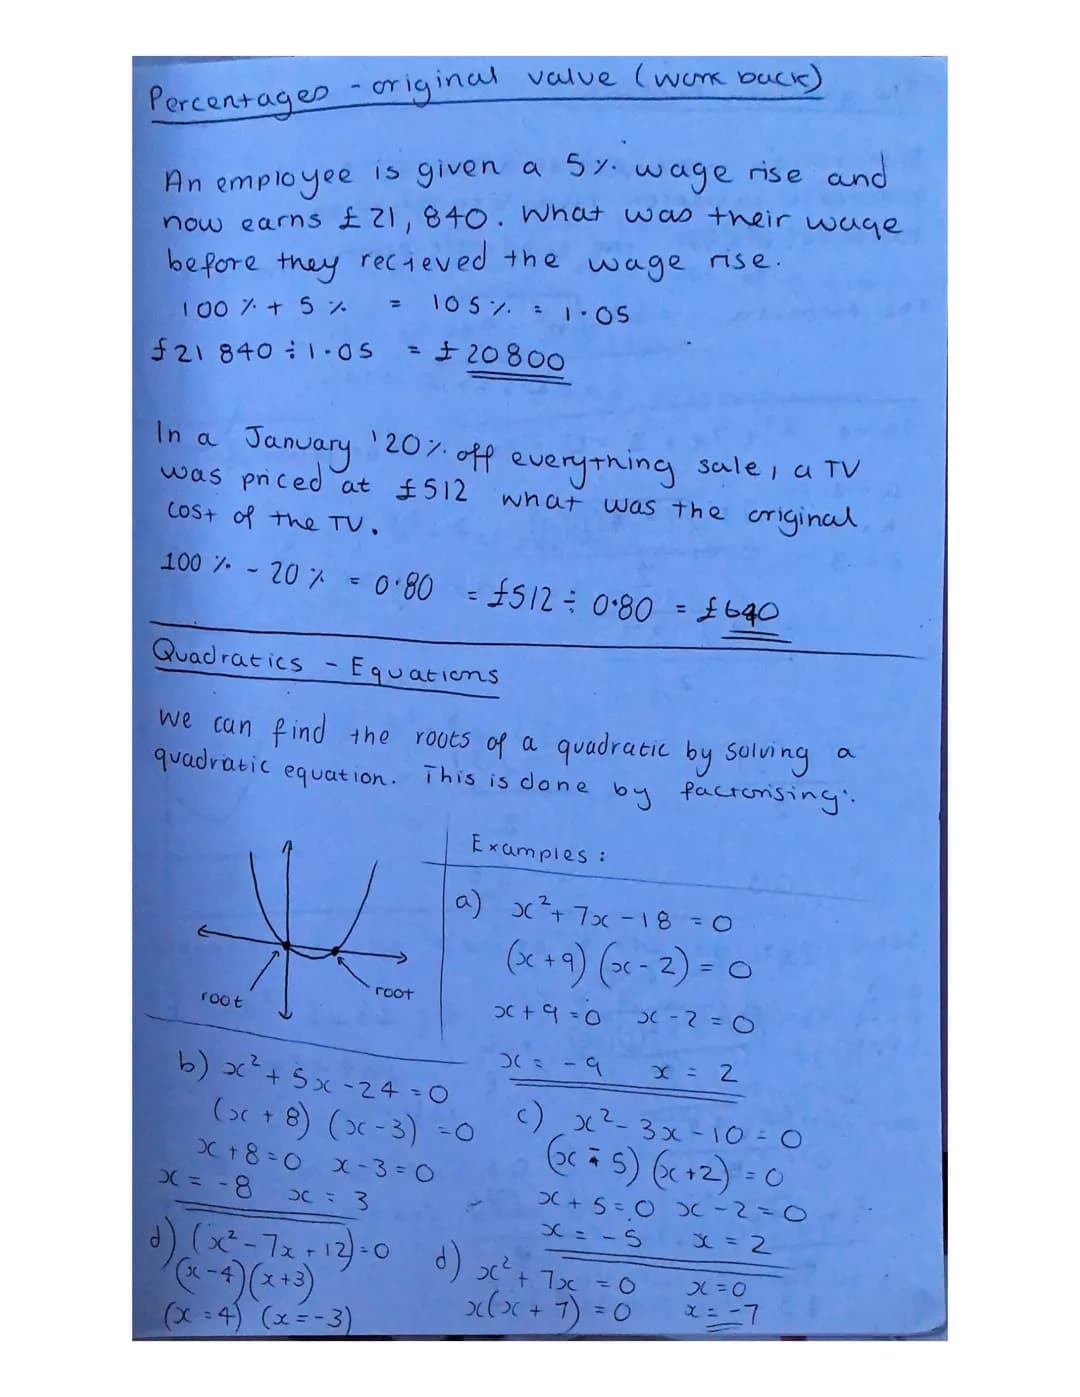 Percentages - original value (work back)
An employee is given a 5% wage rise and
now earns £21,840. What was their wage
before they recieved the wage rise.
100% + 5% = 105% = 1.05
£21 840 ÷ 1.05 = £20800
In a January '20% off everything sale, a TV
was priced at £512 what was the original
cost of the TV.
100% - 20% = 0.80 = £512 ÷ 0.80 = £640
Quadratics - Equations
we can find the roots of a quadratic by solving a
quadratic equation. This is done by factorising:
Examples:
root
root
a) x² + 7x - 18 = 0
(x + 9) (x - 2) = 0
x + 9 = 0 x - 2 = 0
x = -9 x = 2
b) x² + 5x - 24 = 0
(x + 8) (x - 3) = 0
x + 8 = 0 x - 3 = 0
x = -8 x = 3
c) x² - 3x - 10 = 0
(x - 5) (x + 2) = 0
x + 5 = 0 x - 2 = 0
x = -5 x = 2
d) (x² - 7x + 12) = 0
(x - 4)(x + 3)
(x = 4) (x = -3)
d) x² + 7x = 0 x = 0
x(x + 7) = 0 x = -7